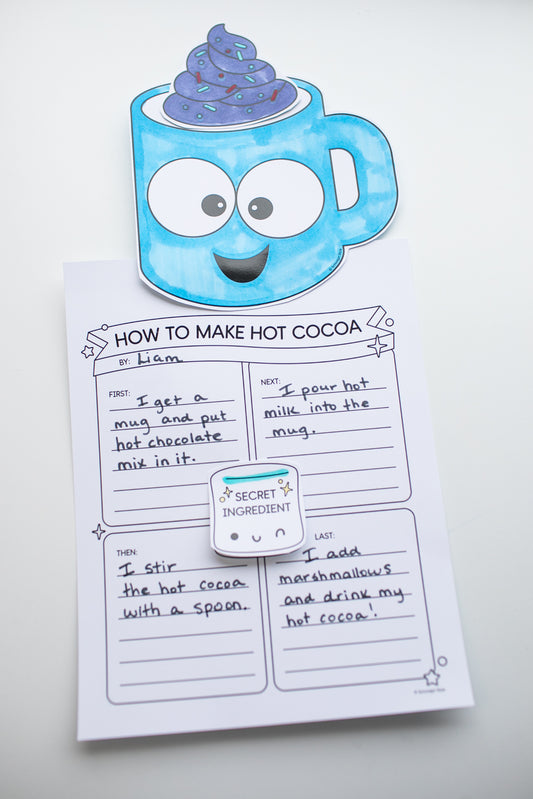 HOW TO MAKE HOT COCOA
BY: Liam
FIRST: I get a
mug and put
hot chocolate
mix in it.
NEXT: I pour hot
milk into the
mug.
SECRET
INGREDIENT
THEN:
I stir
the hot cocoa
with a spoon.
LAST:
I add
marshmallows
and drink my
hot cocoa!